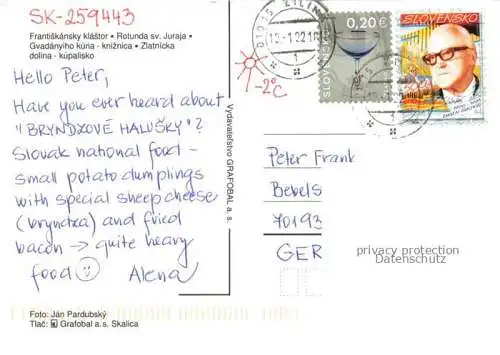 SK-259443
Františkánsky kláštor • Rotunda sv. Juraja •
Gvadányiho kúria - knižnica • Zlatnícka
dolina - kúpalisko
Hello Peter,
Have you ever heard about
"BRYNDZOVÉ HALUŠKY"?
Slovak national food -
small potato dumplings
with special sheep cheese
(bryndza) and fried
bacon → quite heavy
food ☺ Alena
Foto: Ján Pardubský
Tlač: Grafobal a.s. Skalica
Vydavateľstvo GRAFOBAL a. s.
-2°C
ŽILINA
0,20 €
SLOVENSKO
SLOVENSKO
Peter Frank
Bebels
70193
GER
privacy protection
Datenschutz